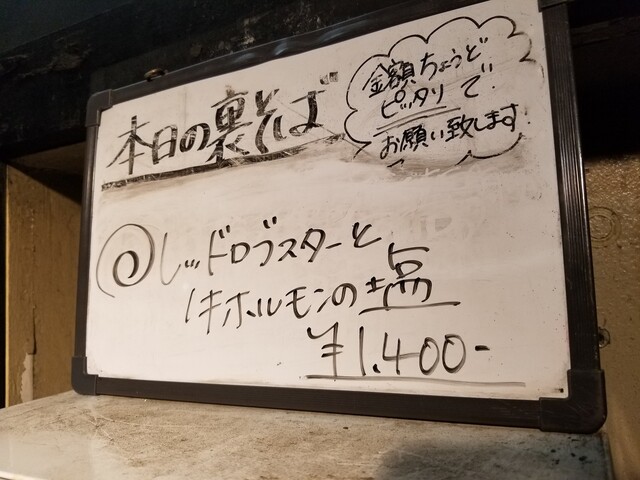 本日の裏そば
金額ちょうど
ピッタリで
お願い致します.
@レッドロブスターと
牛ホルモンの塩
¥1.400-